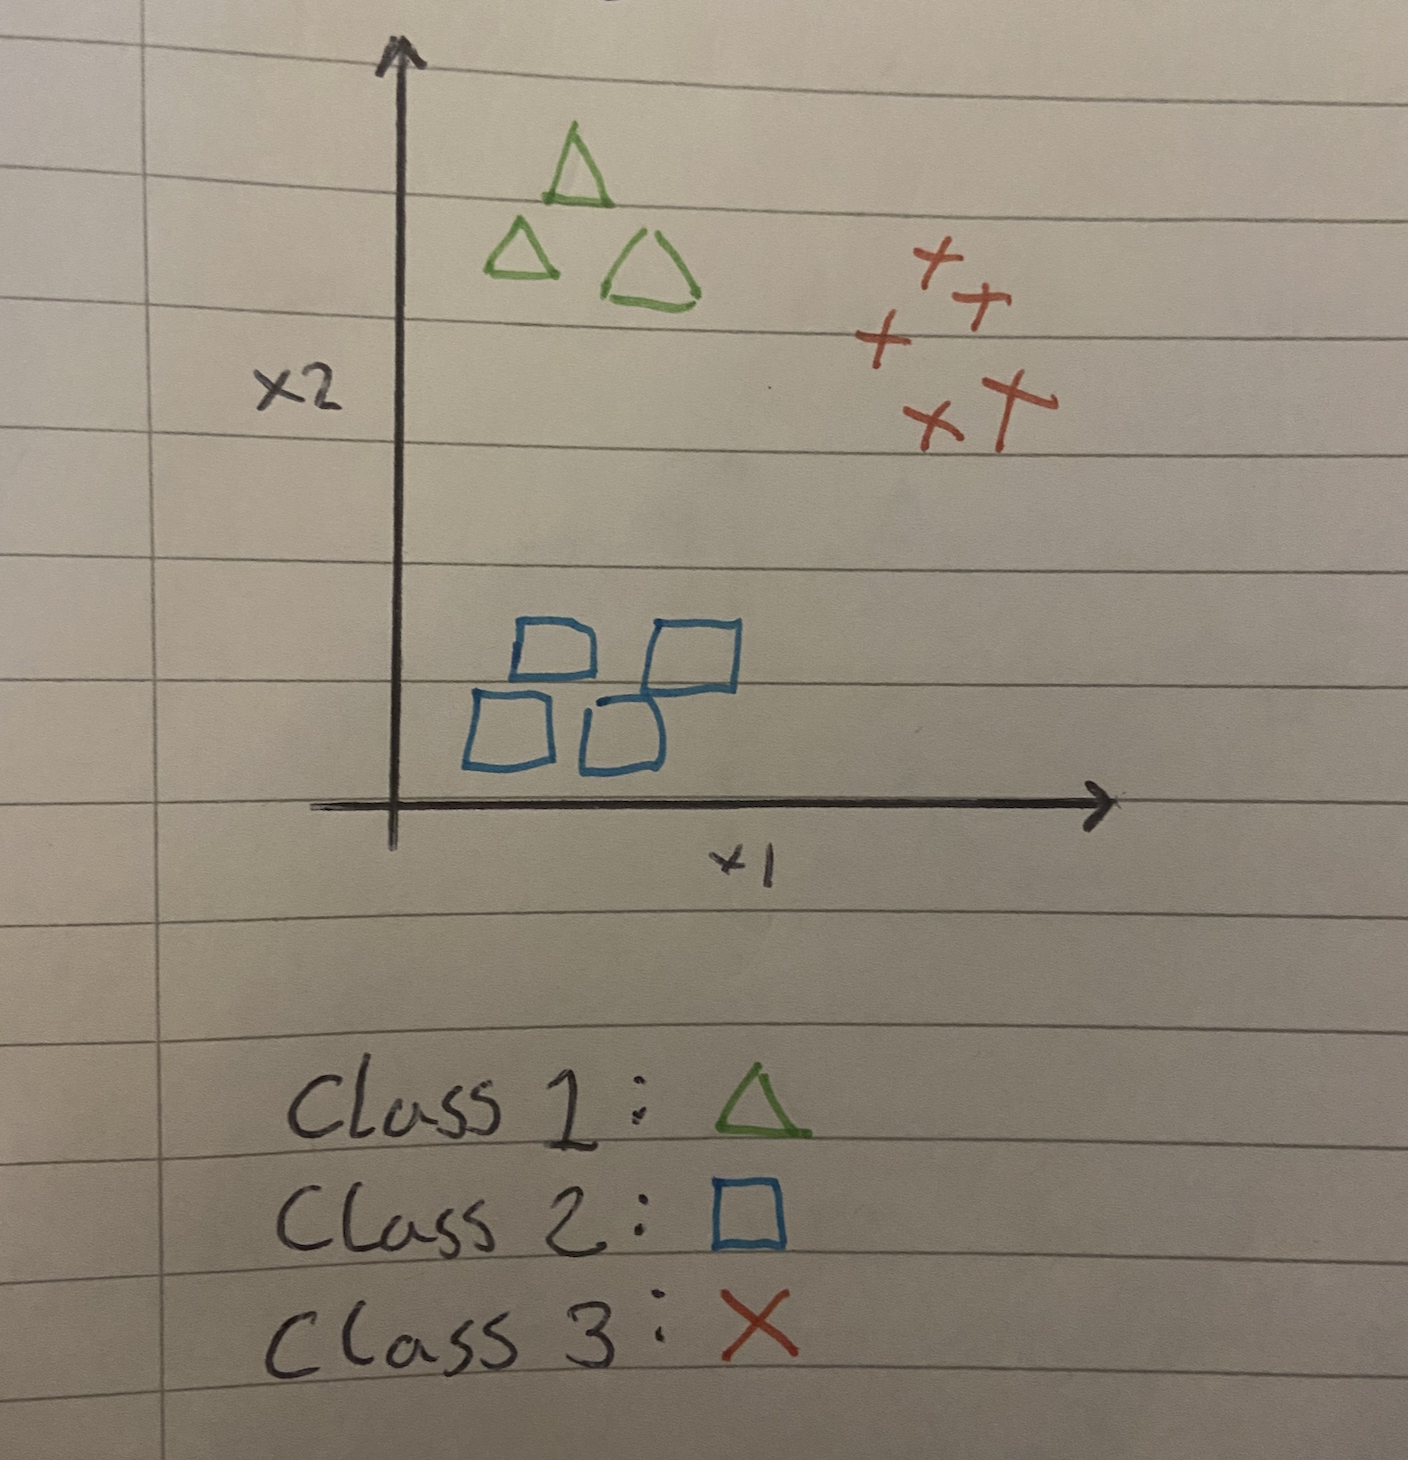 x2
x1
Class 1: △
Class 2: □
Class 3: X